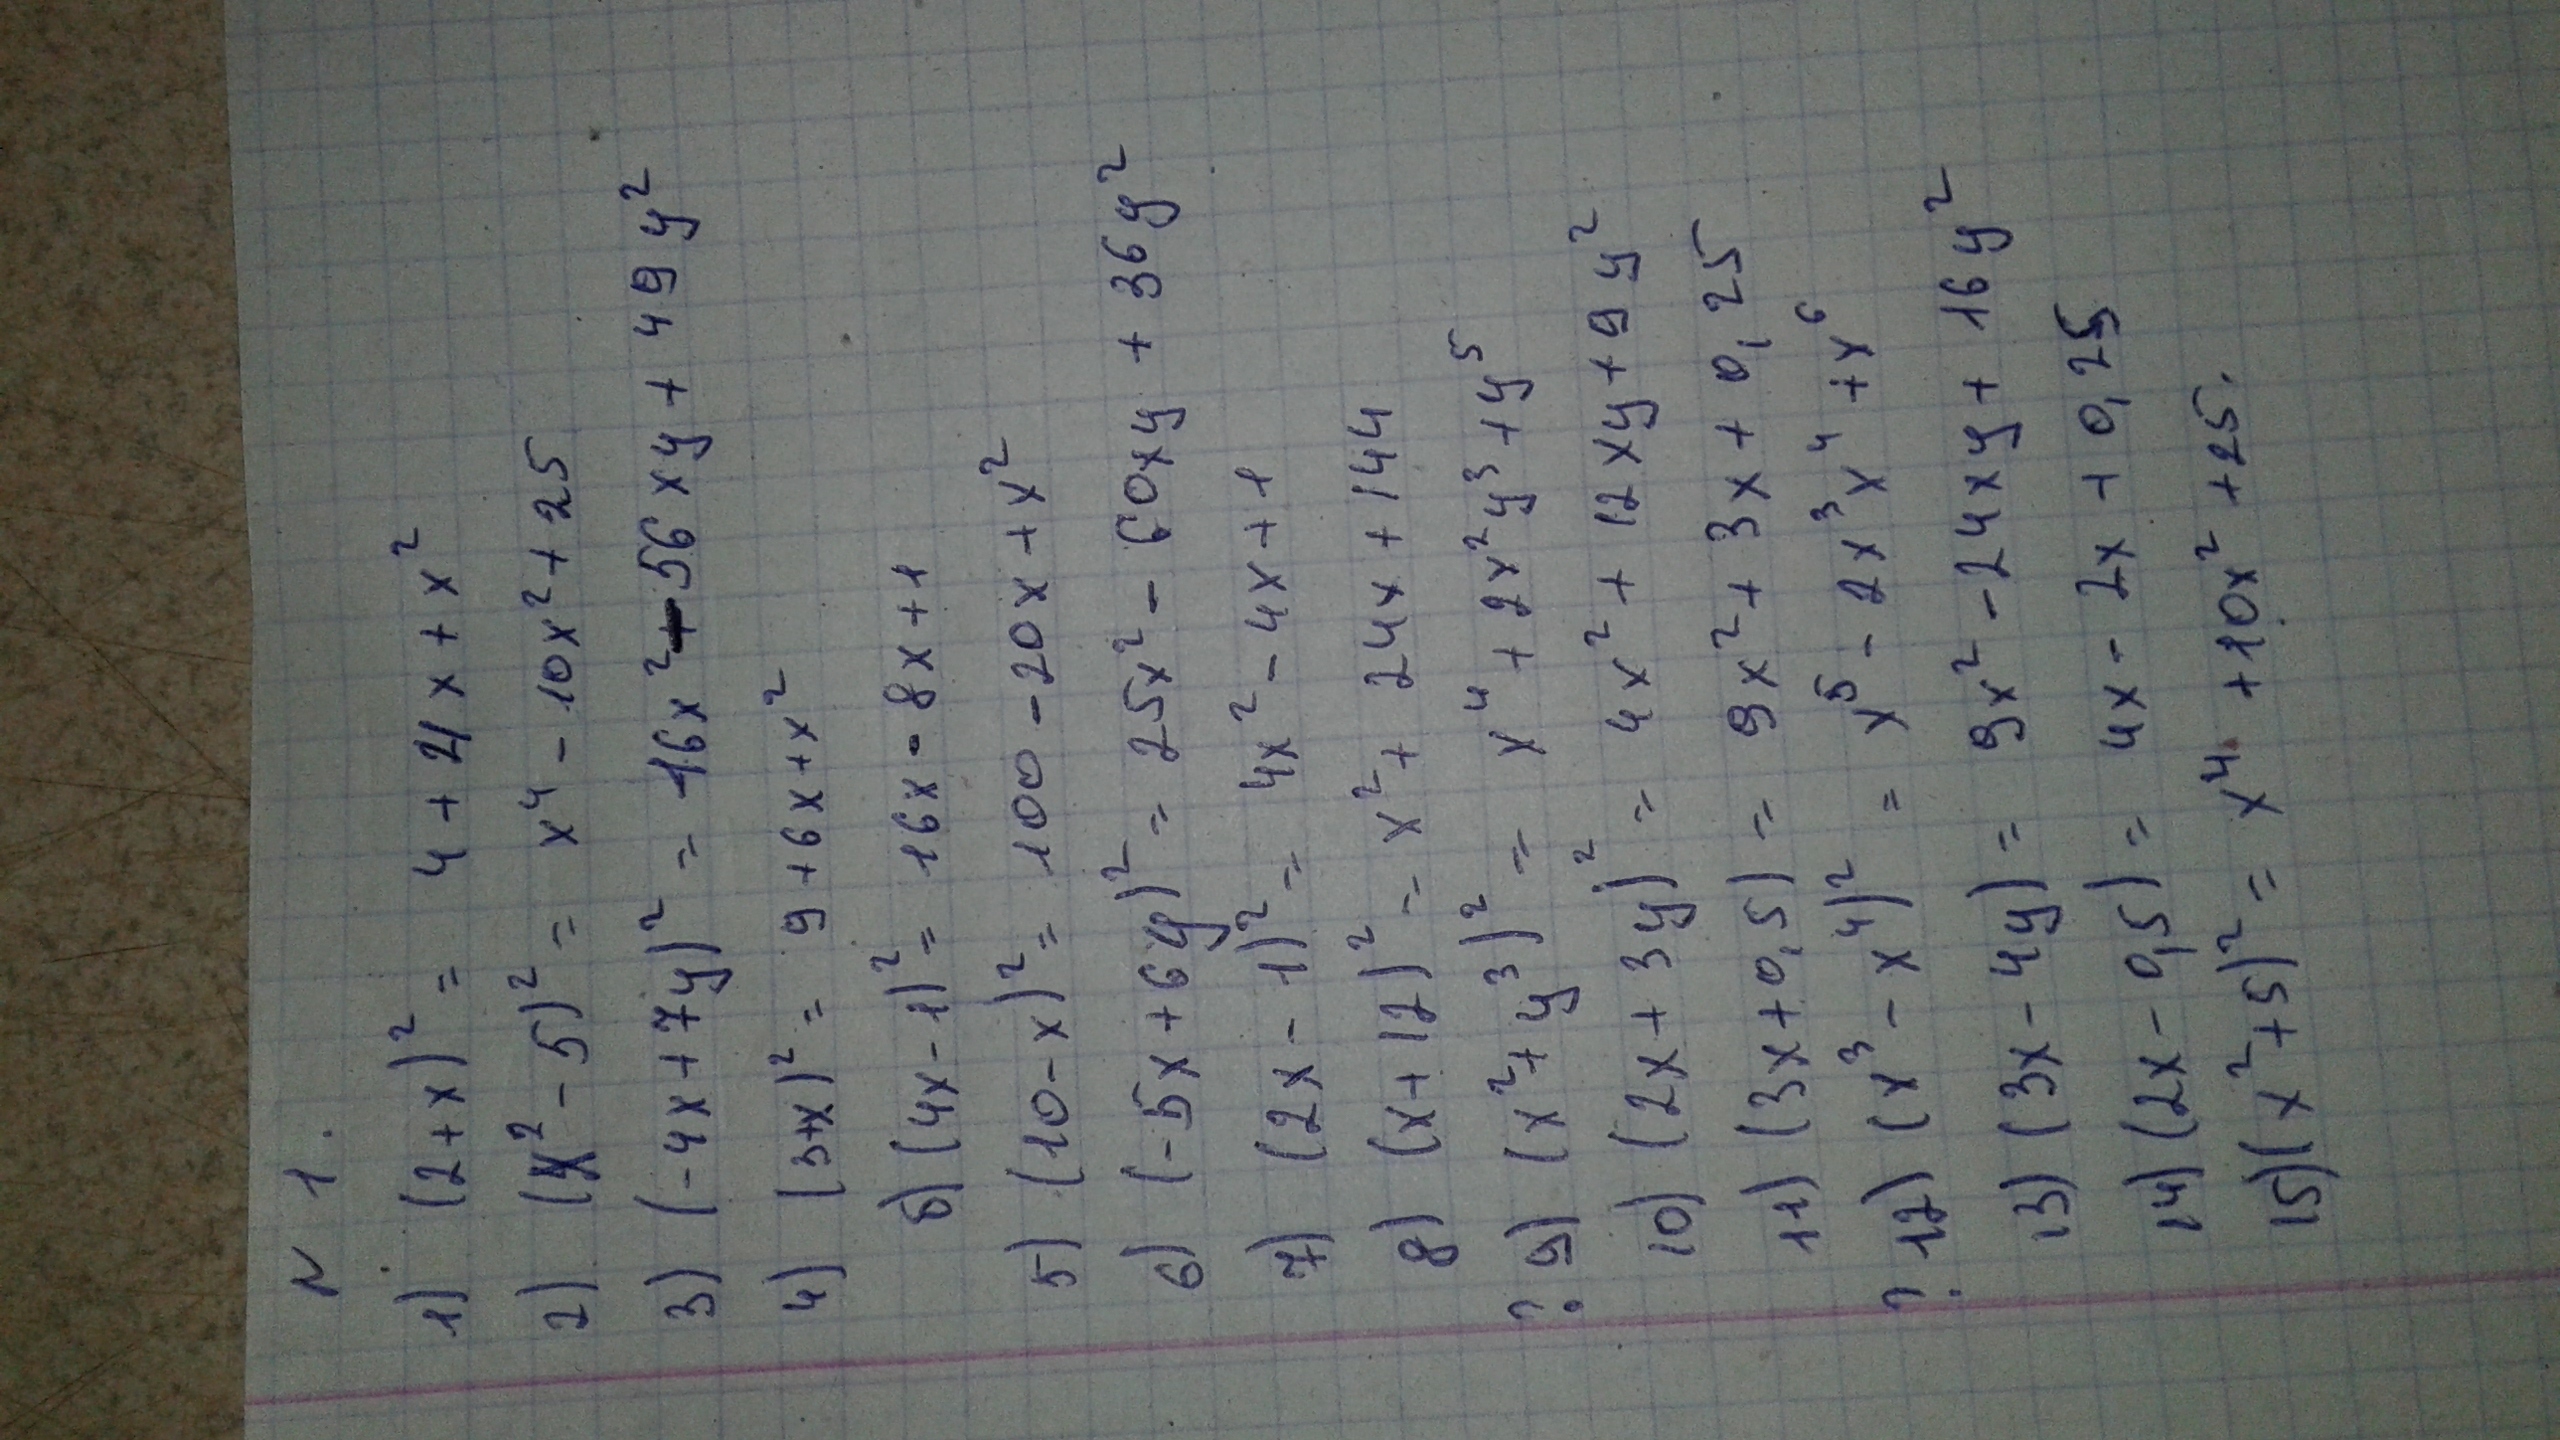 N 1.
1) (2+x)² = 4 + 4x + x²
2) (x²-5)² = x⁴ - 10x² + 25
3) (-4x+7y)² = 16x² - 56xy + 49y²
4) (3+x)² = 9+6x+x²
б) (4x-1)² = 16x - 8x+1
5) (10-x)² = 100 - 20x + x²
6) (-5x+6y)² = 25x² - 60xy + 36y²
7) (2x-1)² = 4x² - 4x+1
8) (x+12)² = x² + 24x + 144
? 9) (x²+y³)² = x⁴ + 2x²y³ + y⁵
10) (2x+3y)² = 4x² + 12xy + 9y²
11) (3x+0,5) = 9x² + 3x + 0,25
? 12) (x³-x⁴)² = x⁵ - 2x³x⁴ + x⁶
13) (3x-4y) = 9x² - 24xy + 16y²
14) (2x-0,5) = 4x - 2x + 0,25
15) (x²+5)² = x⁴ + 10x² + 25.